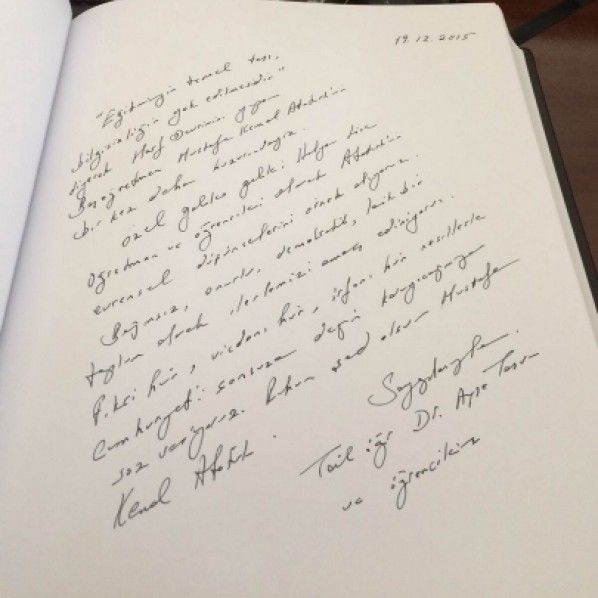 19.12.2015
"Eğitimizin temel taşı,
bilgisizliğin yok edilmesidir"
diyerek Harf Devrimini yapan
Başöğretmen Mustafa Kemal Atatürk'ün
bir kez daha huzurundayız.
Özel gökçe Lisesi
öğretmen ve öğrencileri olarak Atatürk'ün
evrensel düşüncelerini örnek alıyoruz.
Bağımsız, onurlu, demokratik, laik bir
toplum olarak ilerlemizi amaç ediniyoruz.
Fikri hür, vicdanı hür, irfanı hür nesillerle
Cumhuriyet'i sonsuza değin koruyacağımıza
söz veriyoruz. Ruhun şad olsun Mustafa
Kemal Atatürk.
Saygılarımla.
Tarih öğr Dr. Ayşe
ve öğrencileri